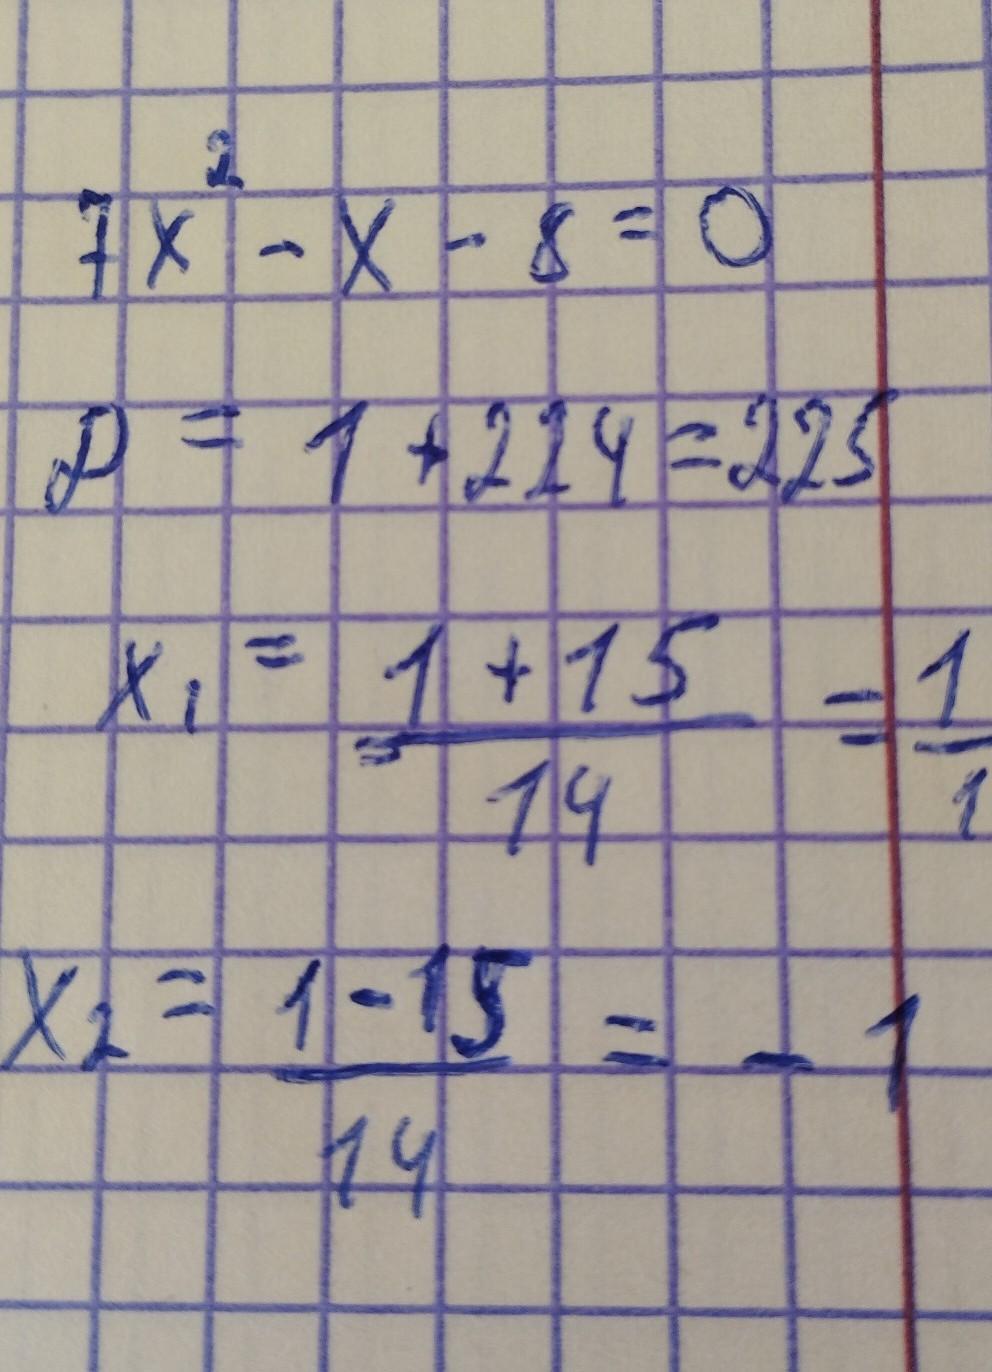 7x² - x - 8 = 0
D = 1 + 224 = 225
x₁ = (1 + 15)/14 = 1/1
x₂ = (1 - 15)/14 = - 1